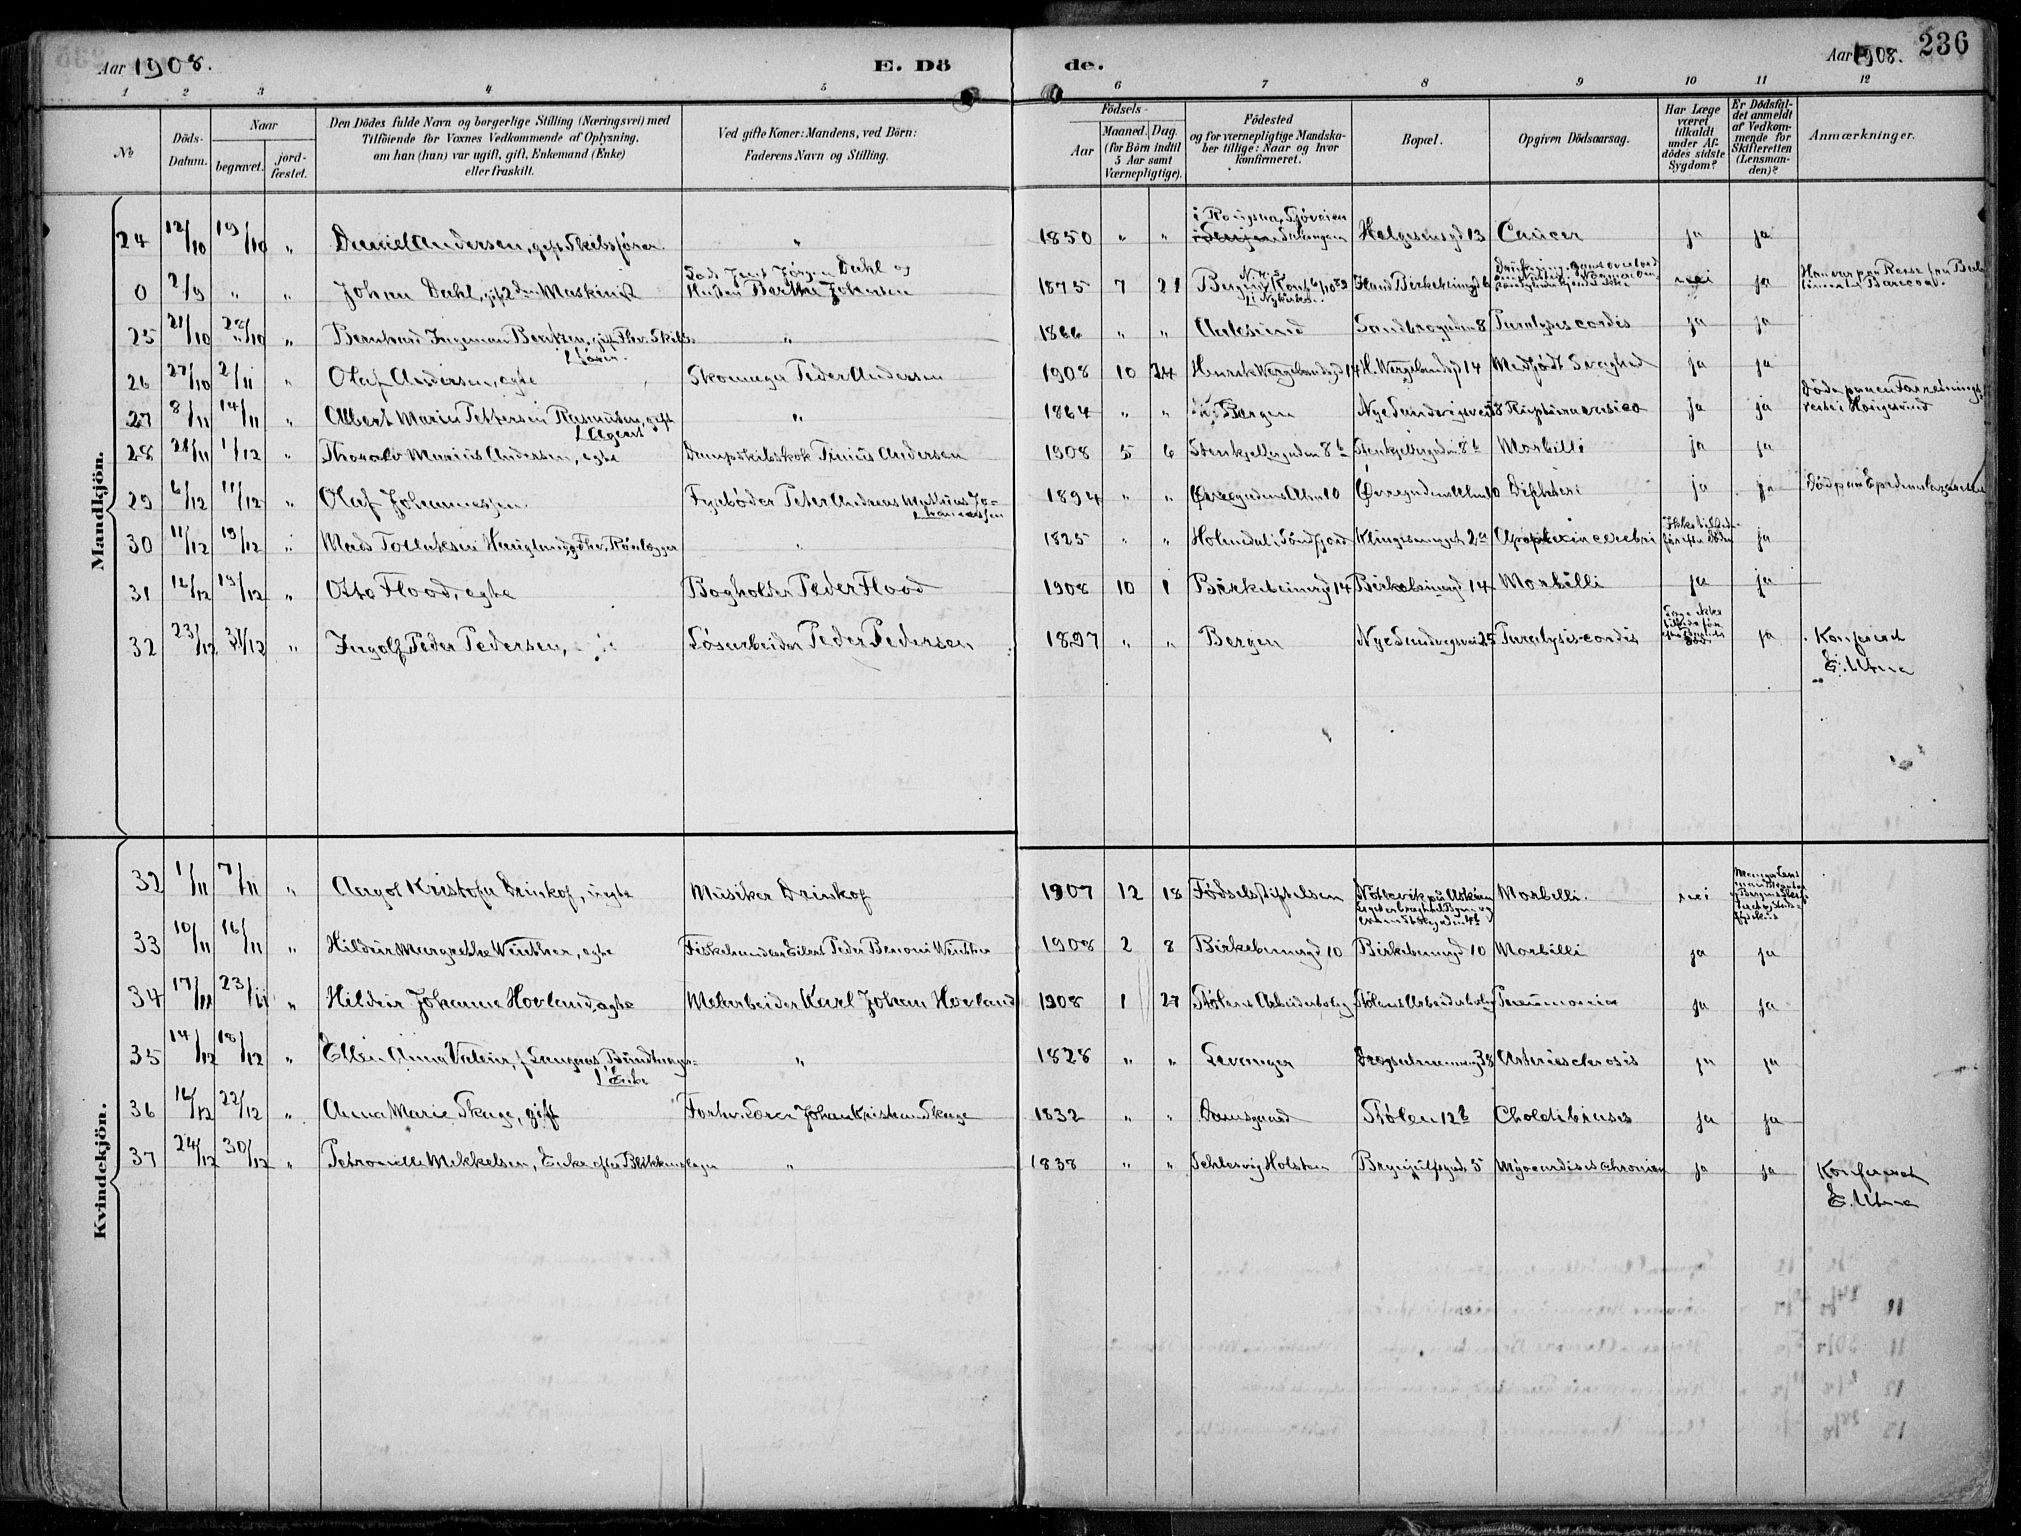 Aar 1908. E. Dö de. Aar 1908. 236
1 2 3 4 5 6 7 8 9 10 11 12
No
Döds-Datum.
Naar
begravet.
jord-fæstet.
Den Dödes fulde Navn og borgerlige Stilling (Næringsvei) med
Tilföiende for Voxnes Vedkommende af Oplysning,
om han (hun) var ugift, gift, Enkemand (Enke)
eller fraskilt.
Ved gifte Koner: Mandens, ved Börn:
Faderens Navn og Stilling.
Födsels-
Aar
Maaned. Dag.
(for Börn indtil
5 Aar samt
Værnepligtige).
Födested
og for værnepligtige Mandska-
ber tillige: Naar og hvor
konfirmeret.
Bopæl.
Opgiven Dödsaarsag.
Har Læge
været
tilkaldt
under Af-
dödes sidste
Sygdom?
Er Dödsfal-
det anmeldt
af Vedkom-
mende for
Skifteretten
(Lensman-
den)?
Anmærkninger.
Mandkjön.
24 12/10 19/10 " Daniel Andersen, gift Skibsfører " 1850 " " Salangen Helgesensgd 13 Cancer ja ja
0 2/9 " " Johan Dahl, gift 2den Maskinist Jørgen Dahl og
Hustru Berthe Johnsen 1875 7 21 Bergen nei ja
25 21/10 28/10 " Bernhard Ingeman Bentzen, gift Fhv. Skibs-
fører. " 1866 " " Aalesund Sandbrogaden 8 Paralysis cordis ja ja
26 27/10 2/11 " Olaf Andersen, egte Skomager Peder Andersen 1908 10 24 Henrik Wergelandsgd 14 H. Wergelandsgd 14 Medfødt Svaghed ja ja
27 8/11 14/11 " Albert Marin Pettersen Rasmussen, gift
Agent " 1864 " " Bergen Nye Sandvigsvei Ruptura vesica ja ja Døde paa en Forretnings-
reise i Haugesund
28 28/11 1/12 " Thoralv Marius Andersen, egte Dampskibskok Tinius Andersen 1908 5 6 Stenkjellergaden 8b Stenkjellergaden 8b Morbilli ja ja
29 6/12 11/12 " Olaf Johannessen. Fyrbøder Peter Andreas Mathias Jo-
hannessen 1894 " " Øvregadens Alm 10 Øvregadens Alm 10 Difhteri ja ja Død paa Epidemilazarettet
30 11/12 19/12 " Mads Tollaksen Haugland, Fhv. Rørlægger " 1825 " " Holmedal i Søndfjord Klingesmuget 2a Apoplexia cerebri ja
31 12/12 19/12 " Otto Flood, egte Bogholder Peder Flood 1908 10 1 Birkebeinergd 14 Birkebeinergd 14 Morbilli ja ja
32 23/12 31/12 " Ingolf Peder Pedersen, Løsarbeider Peder Pedersen 1897 " " Bergen Nye Sandvigsvei 25 Paralysis cordis ja Konfereret
E. Utne
Kvindekjön.
32 1/11 7/11 " Aagot Kristofa Drinkof, uegte Musiker Drinkof 1907 12 18 Fødselsstiftelsen Morbilli. nei
33 10/11 16/11 " Hildur Margrethe Winther, egte Fiskehandler Eilert Peder Benoni Winther 1908 2 8 Birkebeinergd 10 Birkebeinergd 10 Morbilli ja ja
34 17/11 23/11 " Hildur Johanne Hovland, egte Melarbeider Karl Johan Hovland 1908 1 27 Stølens Arbeiderbolig Stølens Arbeiderbolig Pneumonia ja ja
35 14/12 18/12 " Ellen Anna Valeur, f. Langnæs, Bundtmager-
Enke " 1828 " " Levanger 38 Arteriesclerosis ja ja
36 16/12 22/12 " Anna Marie Skage, gift Forhv. Lærer Johan Kristian Skage 1832 " " Damsgaard Stølen 12b ja ja
37 24/12 30/12 " Petronille Mikkelsen, Enke efter Blikkenslager " 1838 " " Schlesvig Holsten Brynjulfsgd. 5 Myocarditis chronica ja ja Konfereret
E. Utne